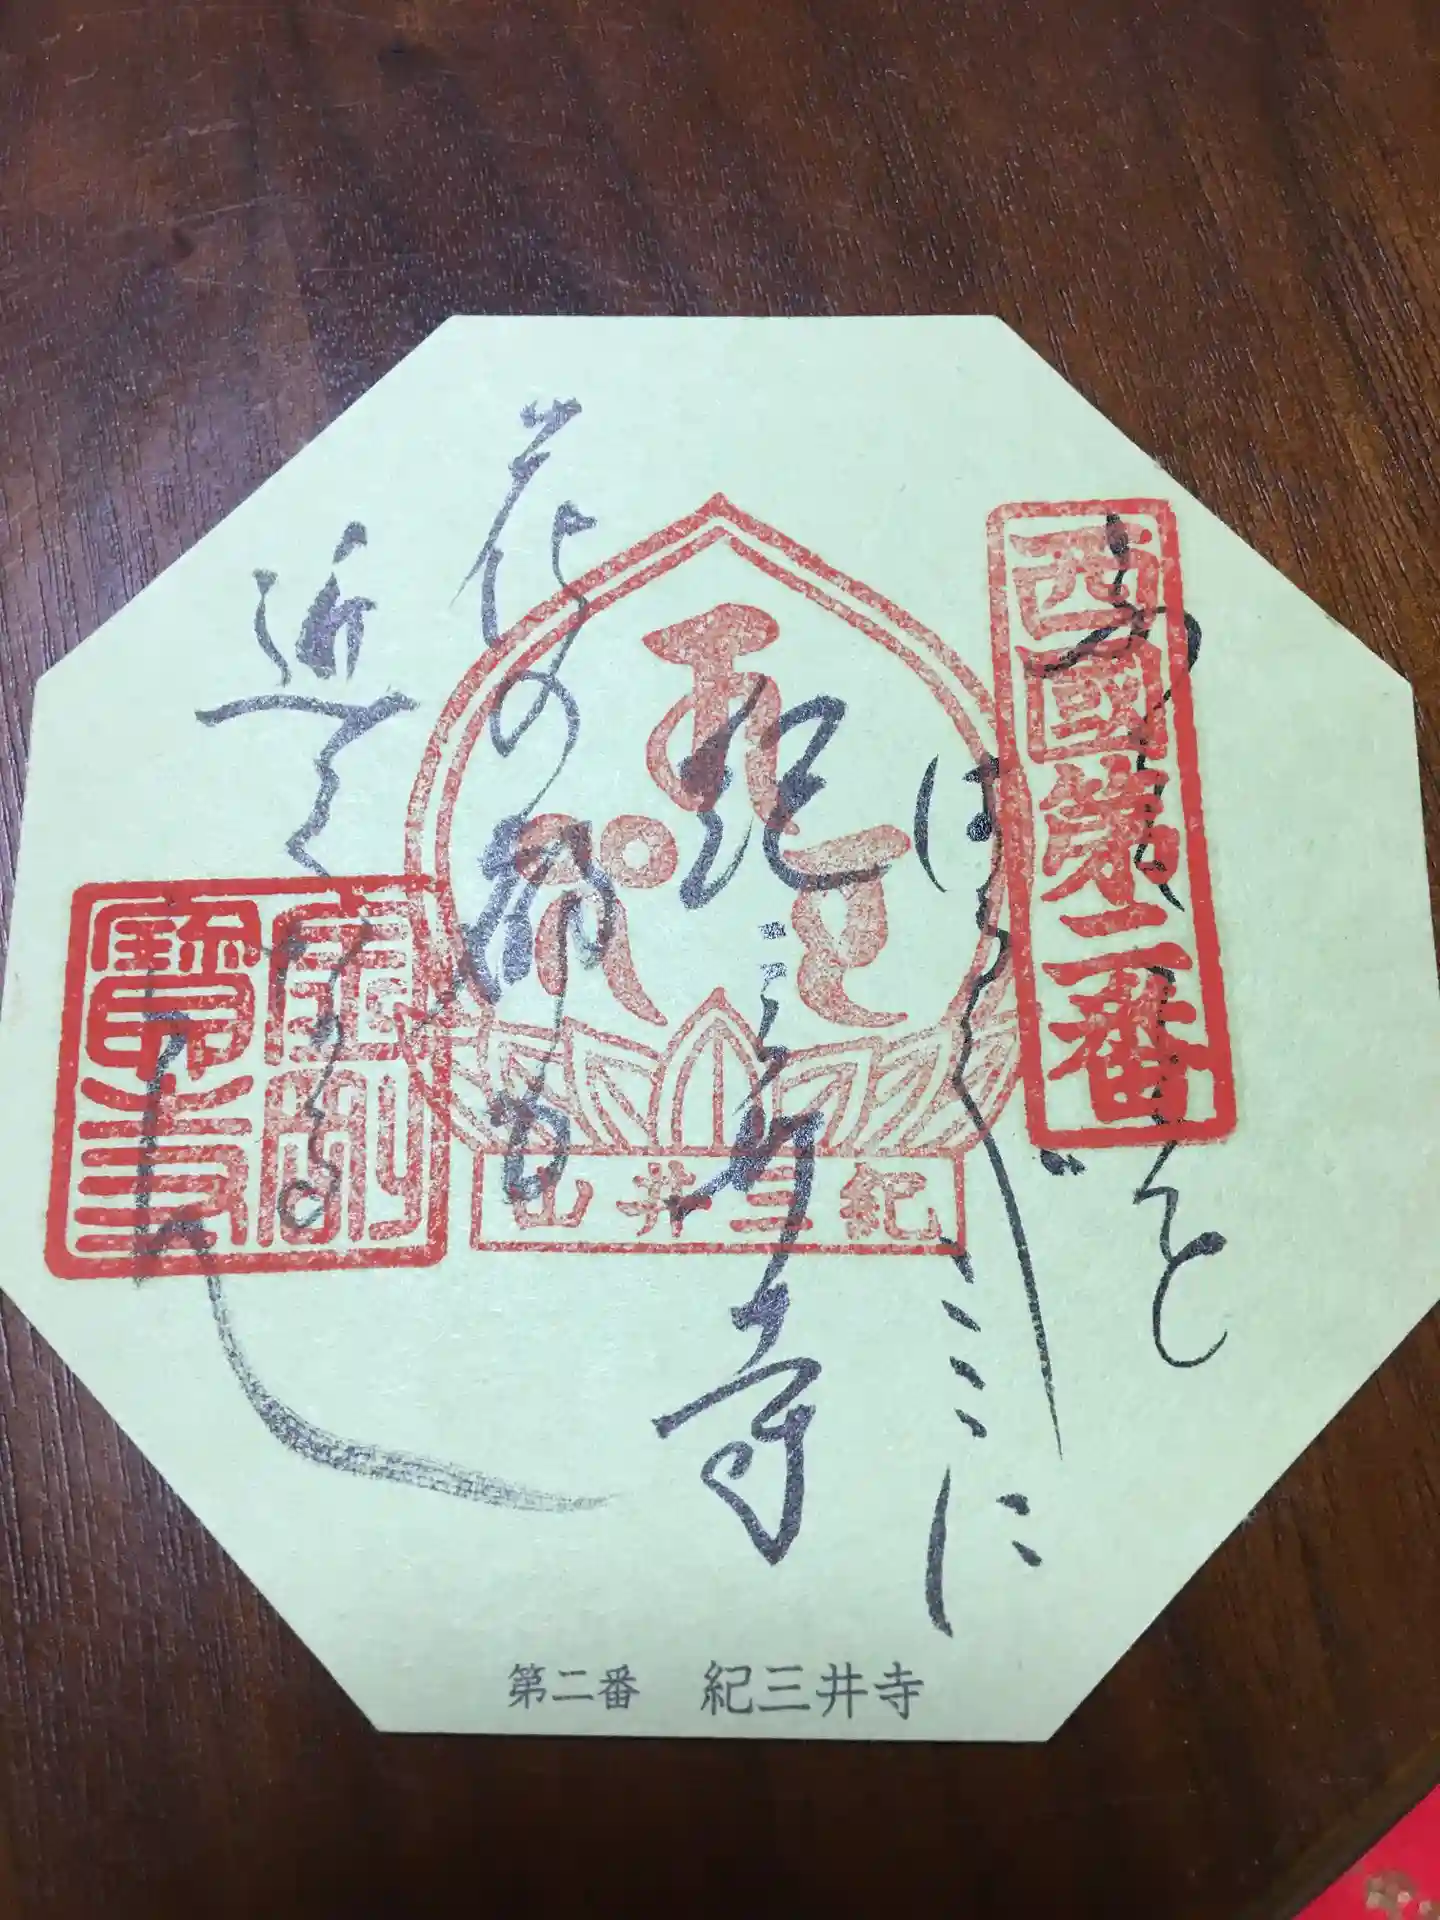 西國第二番
ふるさとを
はる〲こゝに
紀三井寺
花の都も
近くなるらん
紀三井山
金剛
寶寺
第二番　紀三井寺